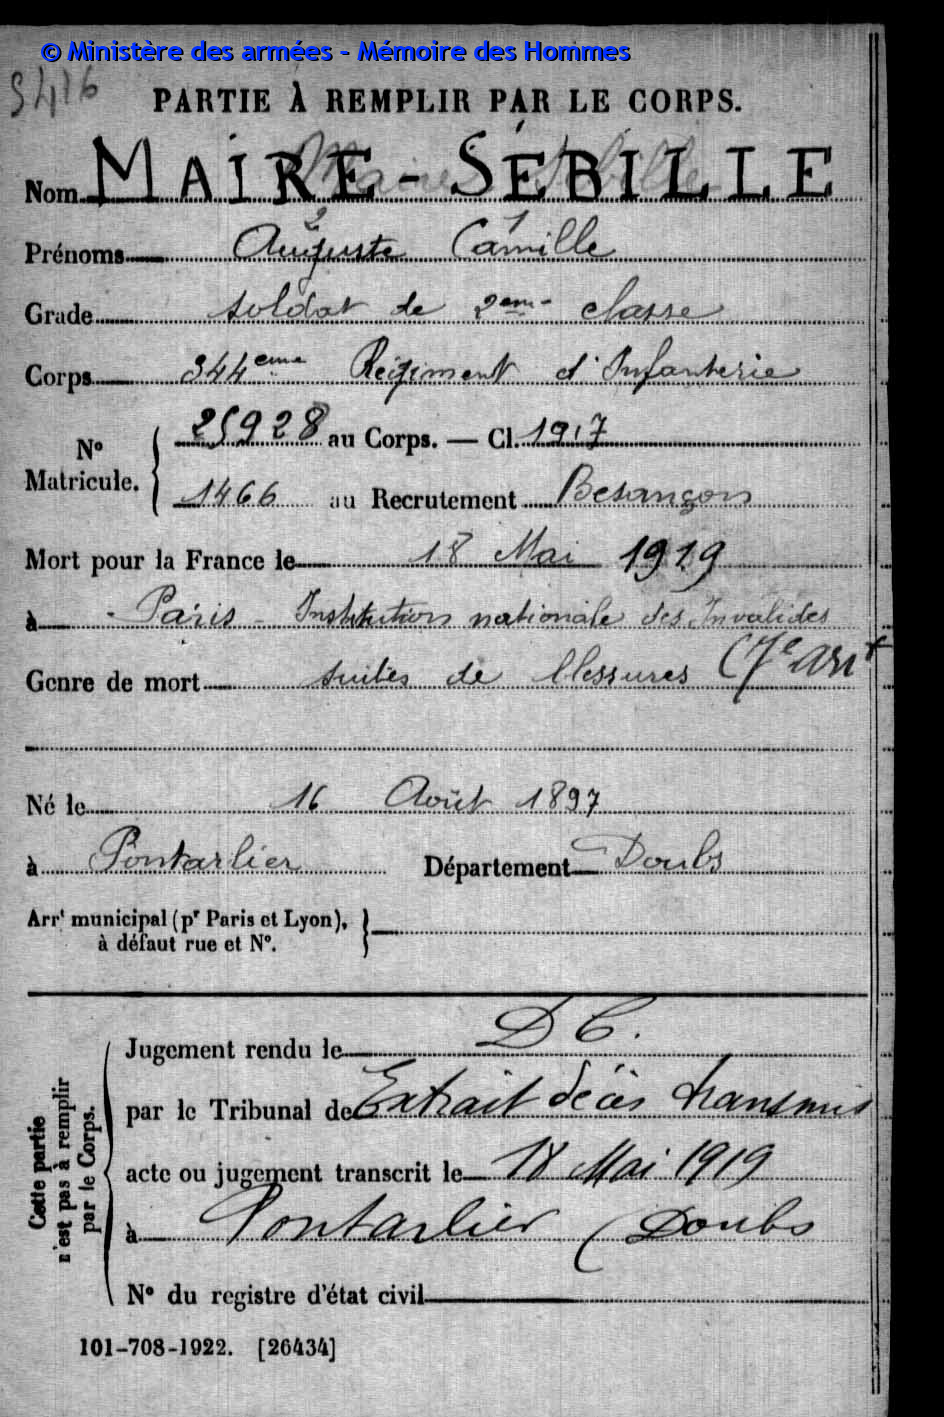 © Ministère des armées - Mémoire des Hommes
9416
PARTIE À REMPLIR PAR LE CORPS.
Nom MAIRE - SÉBILLE
2 1
Prénoms Auguste Camille
Grade soldat de 2eme classe
Corps 344eme Régiment d'Infanterie
N° Matricule. { 25928 au Corps. — Cl. 1917
1466 au Recrutement Besançon
Mort pour la France le 18 Mai 1919
à Paris - Institution nationale des Invalides
Genre de mort suites de blessures (7e arrt
Né le 16 Août 1897
à Pontarlier Département Doubs
Arrt municipal (pr Paris et Lyon),
à défaut rue et N°.
Cette partie n'est pas à remplir par le Corps.
Jugement rendu le D C.
par le Tribunal de Extrait décès transmis
acte ou jugement transcrit le 18 Mai 1919
à Pontarlier (Doubs
N° du registre d'état civil
101-708-1922. [26434]